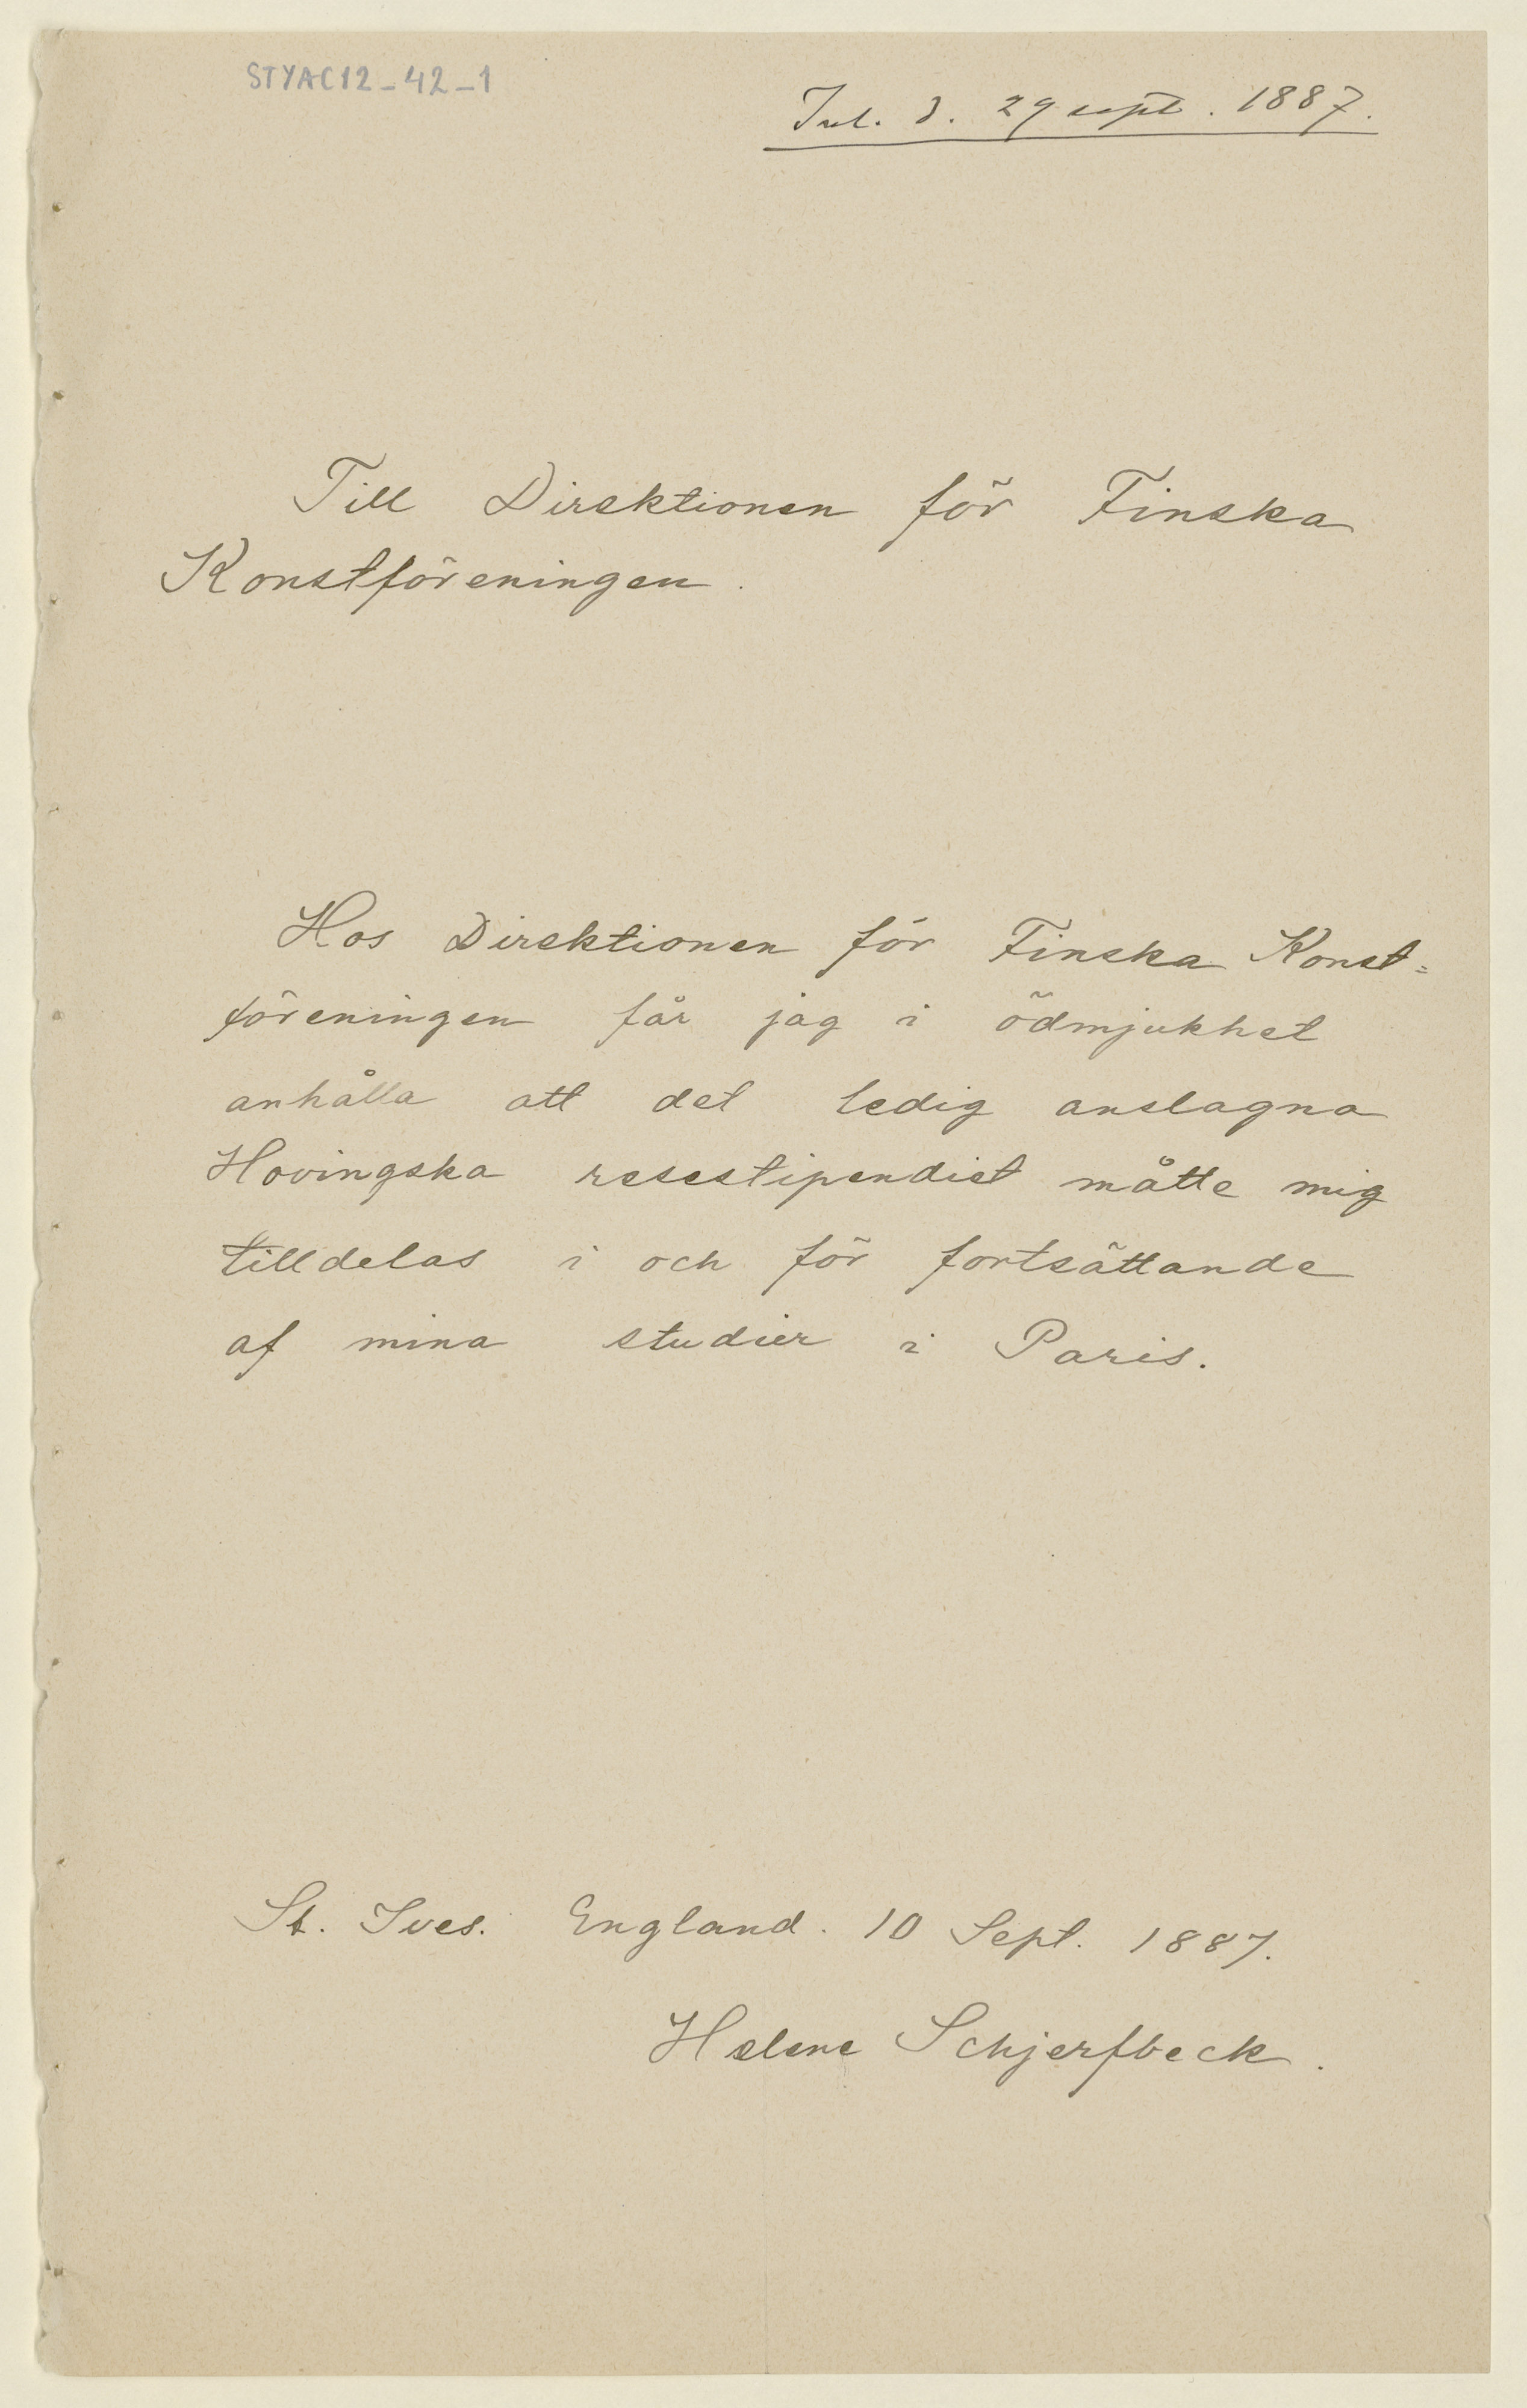 STYAC12-42-1
Inl. d. 29 sept. 1887.
Till Direktionen för Finska
Konstföreningen.
Hos Direktionen för Finska Konst=
föreningen får jag i ödmjukhet
anhålla att det ledig anslagna
Hovingska resestipendiet måtte mig
tilldelas i och för fortsättande
af mina studier i Paris.
St. Ives. England. 10 Sept. 1887.
Helene Schjerfbeck.